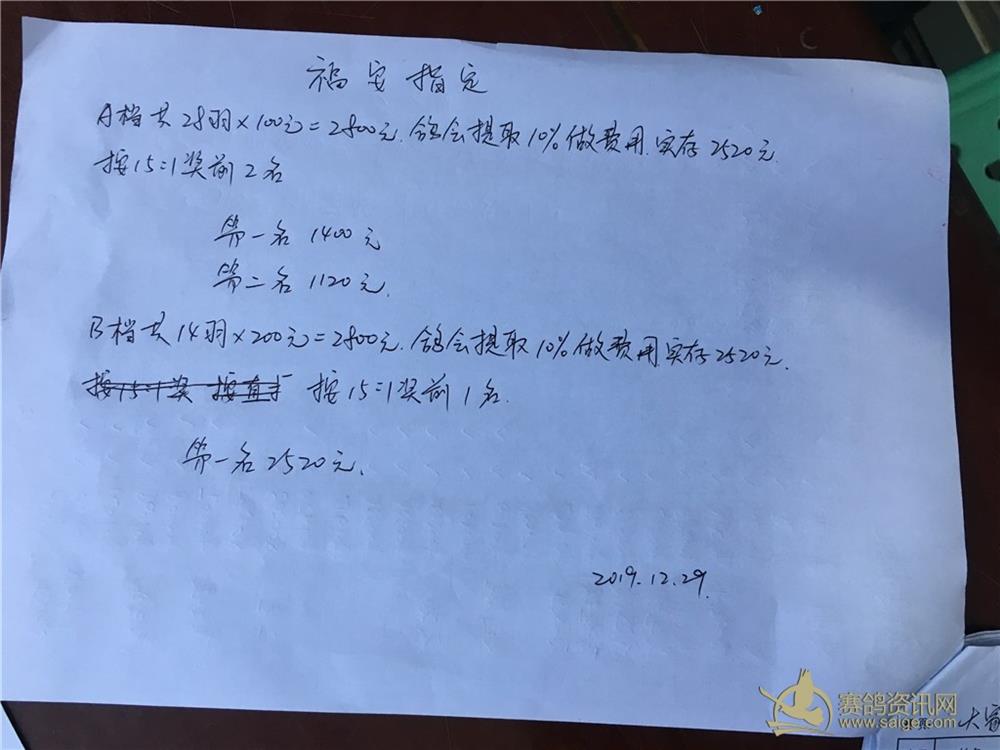 福安指定
A档共28羽×100元=2800元.鸽会提取10%做费用.实存2520元.
按15=1奖前2名
第一名 1400元
第二名 1120元.
B档共14羽×200元=2800元.鸽会提取10%做费用.实存2520元.
按15=1奖 按直 按15=1奖前1名.
第一名2520元.
2019.12.29.
赛鸽资讯网
www.saige.com
大